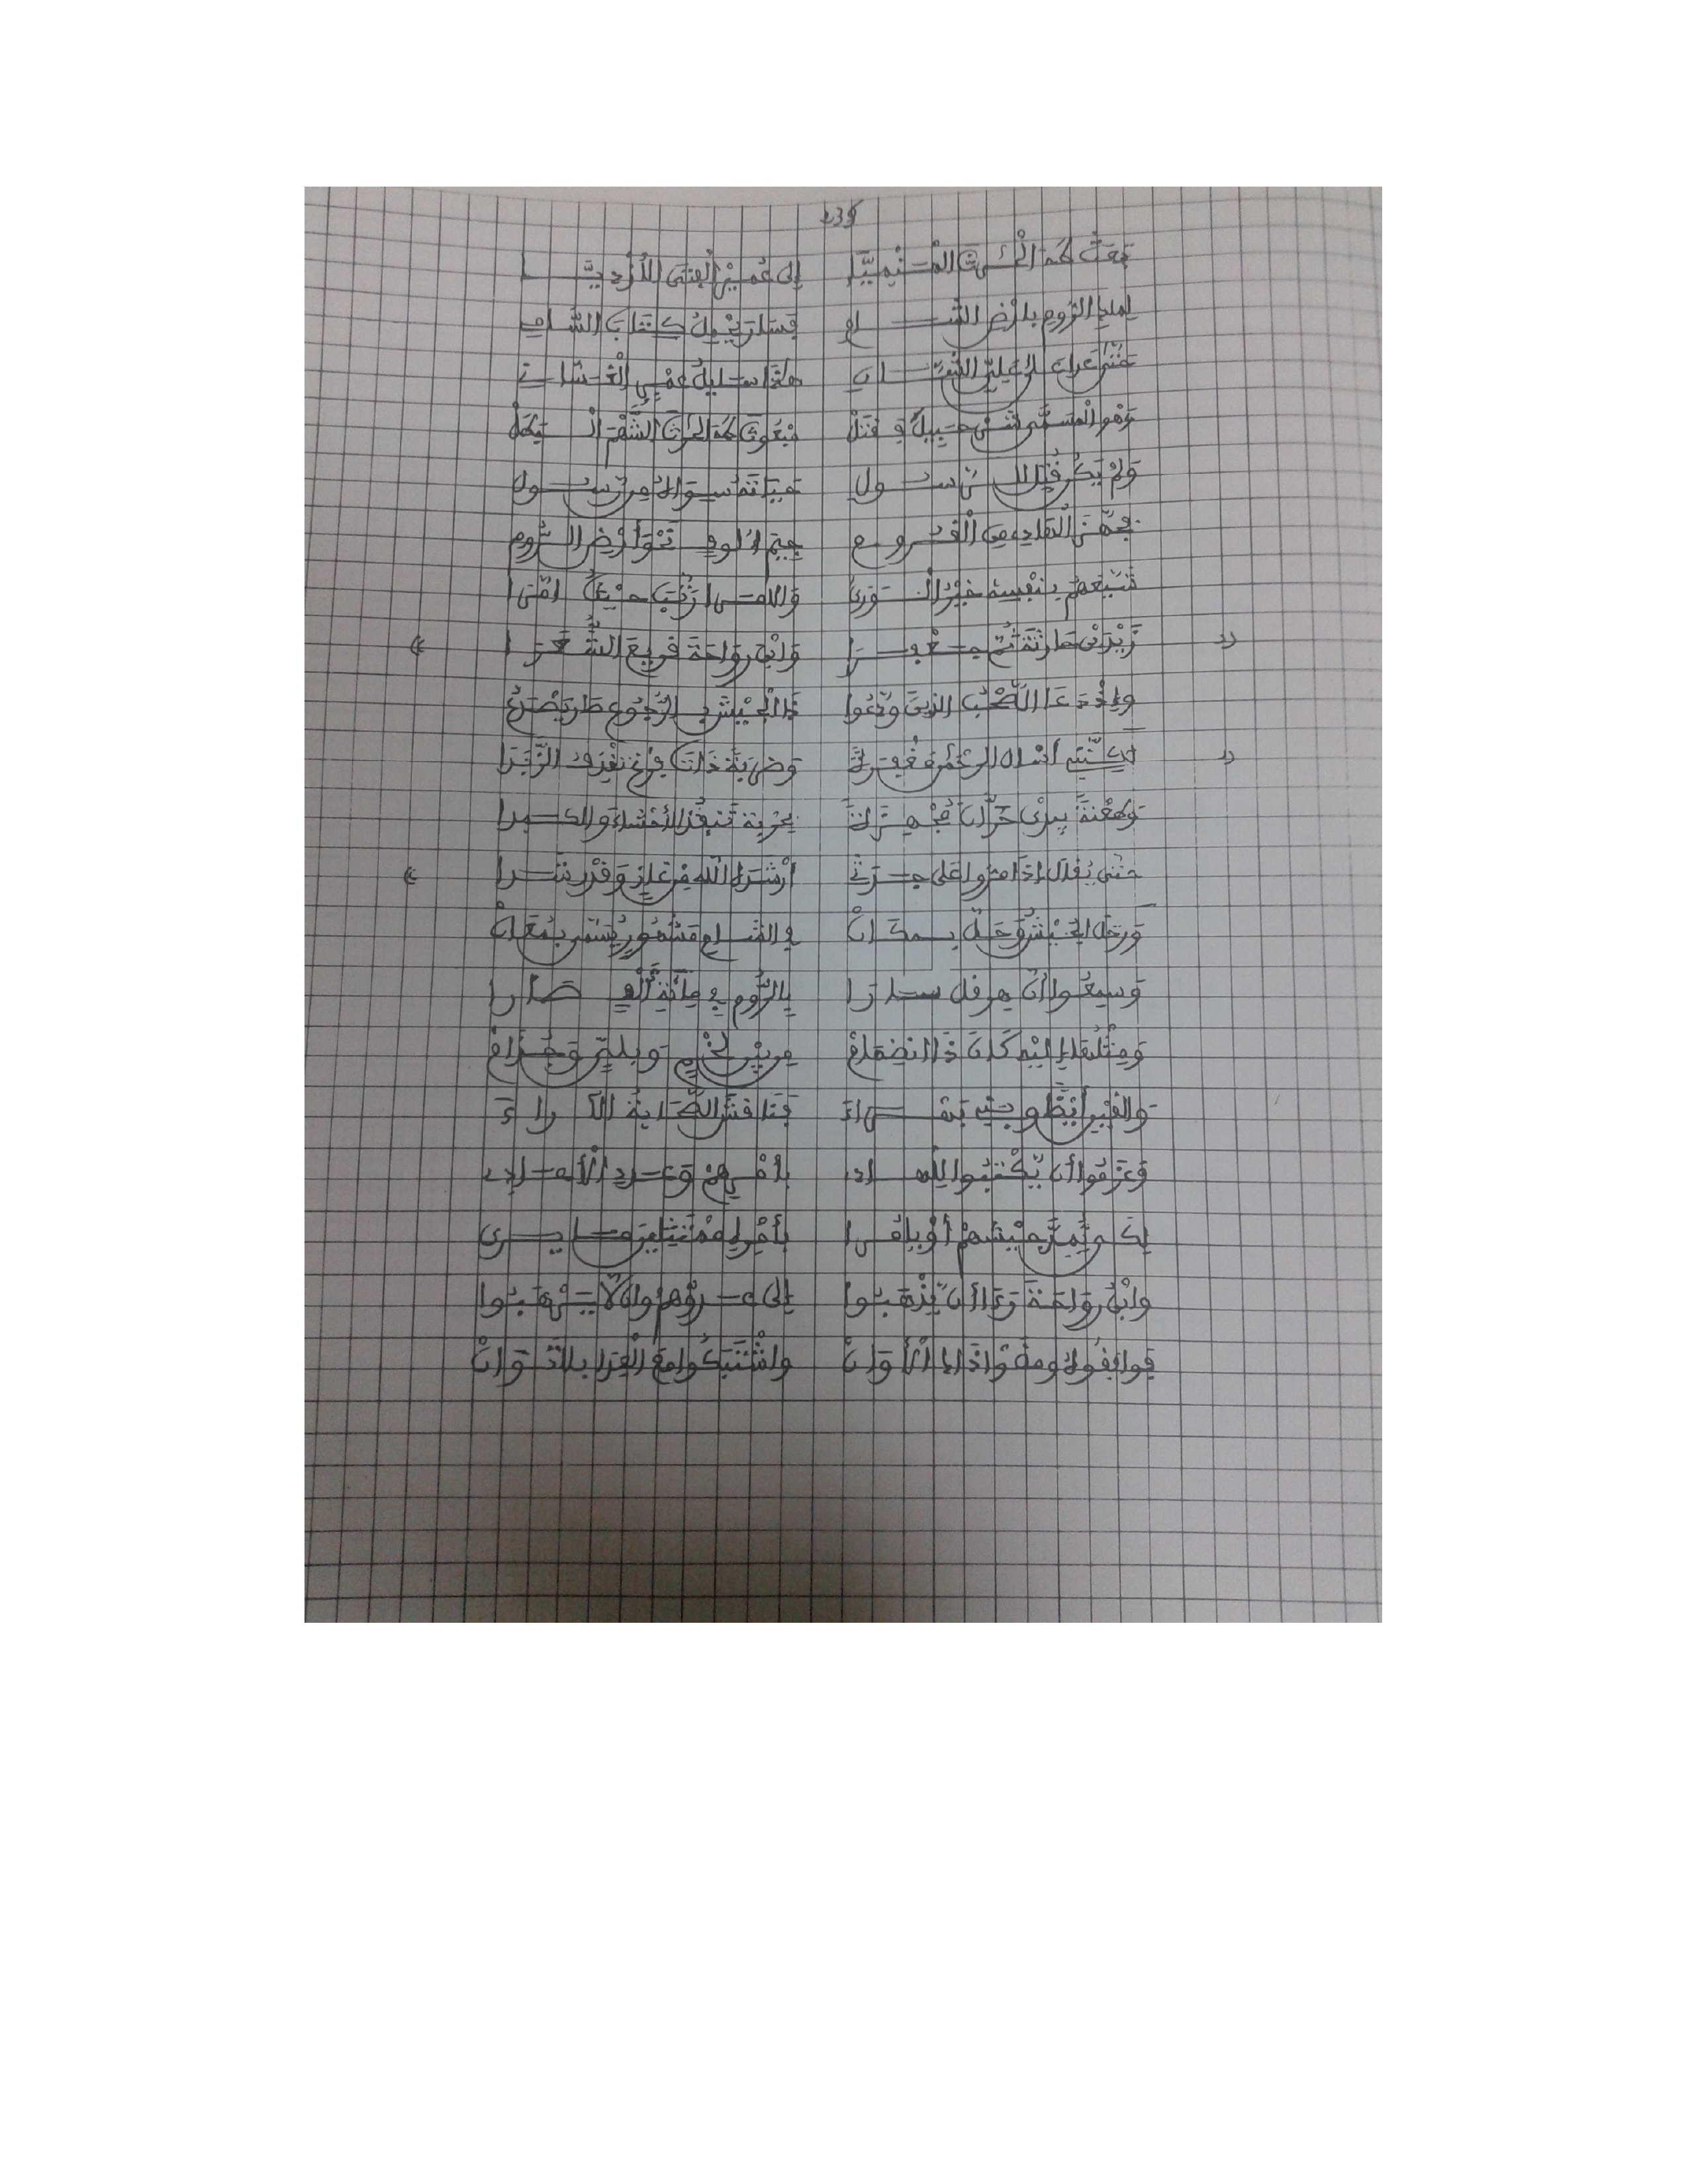 239
بَعْثُ طه الحٰرثَ المنميَّا إلى عُمَيْرِ الفتى الأزديّا
لملِكِ الرُّوم بأرض الشام فسار يحمِلُ كتابَ السَّامِ
هذا سليلُ عمرٍو الغسَّاني
وهو المسمى شرحبيلُ وقتلْ مبعوثَ طه الحرثَ الشَّهْمَ البطلْ
ولم يكن قُتِل للرسول حياتَه سواهُ من رسول
فجهَّز القاده من القروم جيم ألوفٍ نحوَ أرض الرُّوم
شيَّعهم بنفسه خيْرُ الورى والله
زيْدَ بْن حارثة ثُمَّ جعفرا وابْن رواحة قريع الشُّعَرا
وإذ دعا الصَّحْبُ الذين ودَّعوا ذا الجيشِ بالرُّجوع طار يصْرَعُ
« لكنني أسأل الرحمٰن مغفرةً وضربةً ذاتَ فرغٍ تقذف الزَّبَدَا
وطعْنةً بيدَيْ حرَّانَ مُجْهِزةً بحربةٍ تنفُذُ الأحشاءَ والكبدا
حتى يُقال إذا مرُّوا على جدثي أرْشَدَهُ اللّهُ من غازٍ وقدْ رشدا »
ورحَل الجيْشُ وحلَّ بمكانْ في الشام مشهورٍ يُسَمَّى بمُعانْ
وسمعُوا أنْ هرقل سارا بالرُّوم في مائة ألفٍ صارا
ومثْلُها إليْهِ كان ذا انضمامْ من بيْن لخْمٍ وبليٍّ وجُذامْ
والقيْن أيضًا وبني بهراءَ فناقش الصَّحابةُ الآراءَ
وعرَفوا أن يَّكْتبُوا للهادِ بأمْرِهمْ وعددِ الأعادِ
لكي يُمِدَّ جيْشَهمْ أوْ يامُرا بأمْرِهِ مُمْتثلين ما يرى
وابْنُ رواحة رءا أن يَّذْهَبُوا إلى عدوِّهمْ وأن لّا يرْهَبُوا
فوافقُوهُ ومضَوْا ذا الأوانْ واشْتبكُوا مع العِدَا بلا تَوَانْ